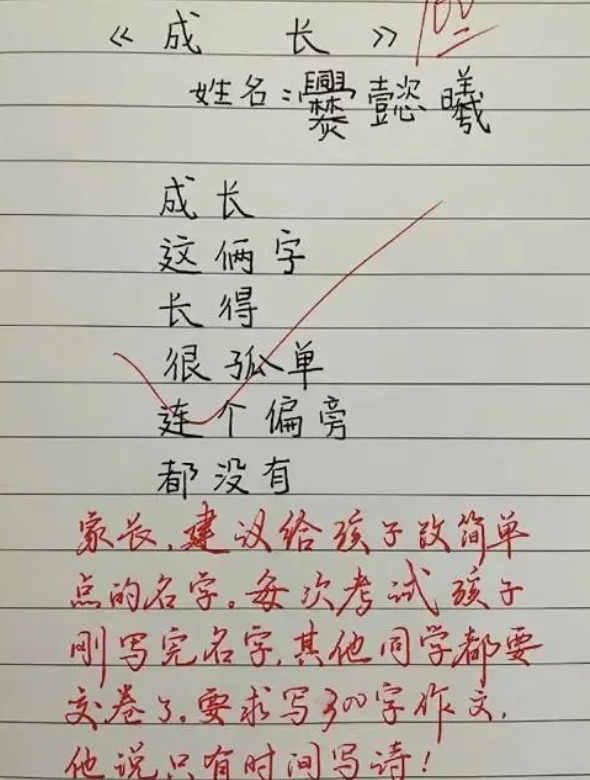 《成 长》 100
姓名:爨懿曦
成长
这俩字
长得
很孤单
连个偏旁
都没有
家长,建议给孩子改简单
点的名字。每次考试孩子
刚写完名字,其他同学都要
交卷了。要求写300字作文,
他说只有时间写诗!